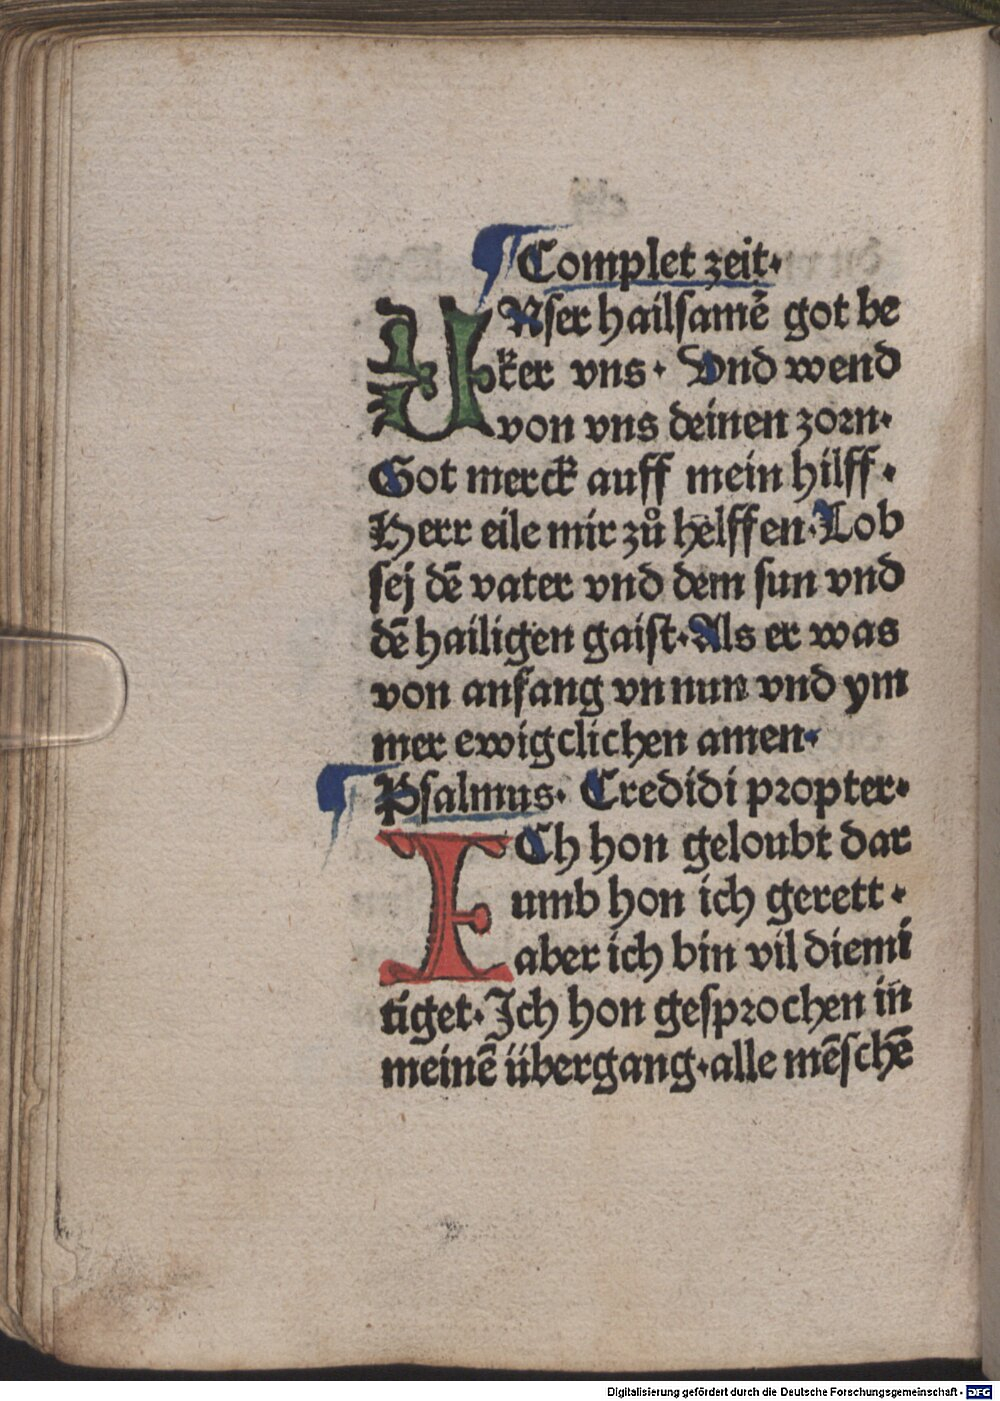 Complet zeit·
UNser hailsamē got be
ker vns· Vnd wend
von vns deinen zorn·
Got merck auff mein hilff·
Herr eile mir zů helffen·Lob
sej dē vater vnd dem sun vnd
dē hailigen gaist·Als er was
von anfang vn nun vnd ym
mer ewigclichen amen·
Psalmus· Credidi propter·
ICh hon geloubt dar
umb hon ich gerett·
aber ich bin vil diemi
tiget·Jch hon gesprochen in
meinē übergang·alle mēschē
Digitalisierung gefördert durch die Deutsche Forschungsgemeinschaft - DFG